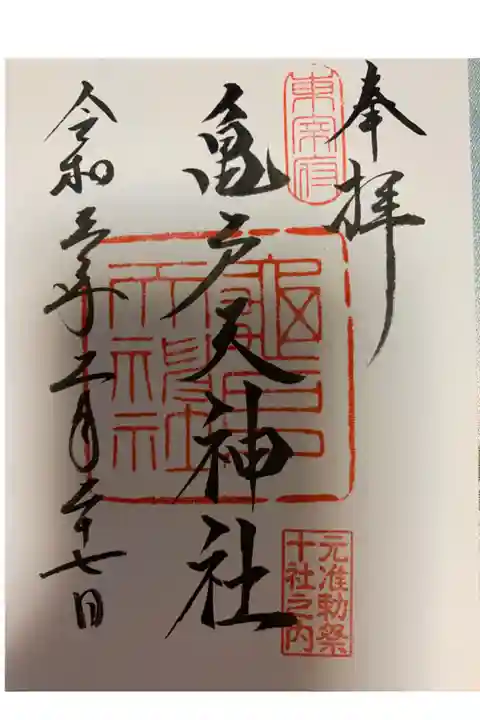 奉拝
東宰府
元准勅祭
十社之内
亀戸天神社
令和三年二月二十七日